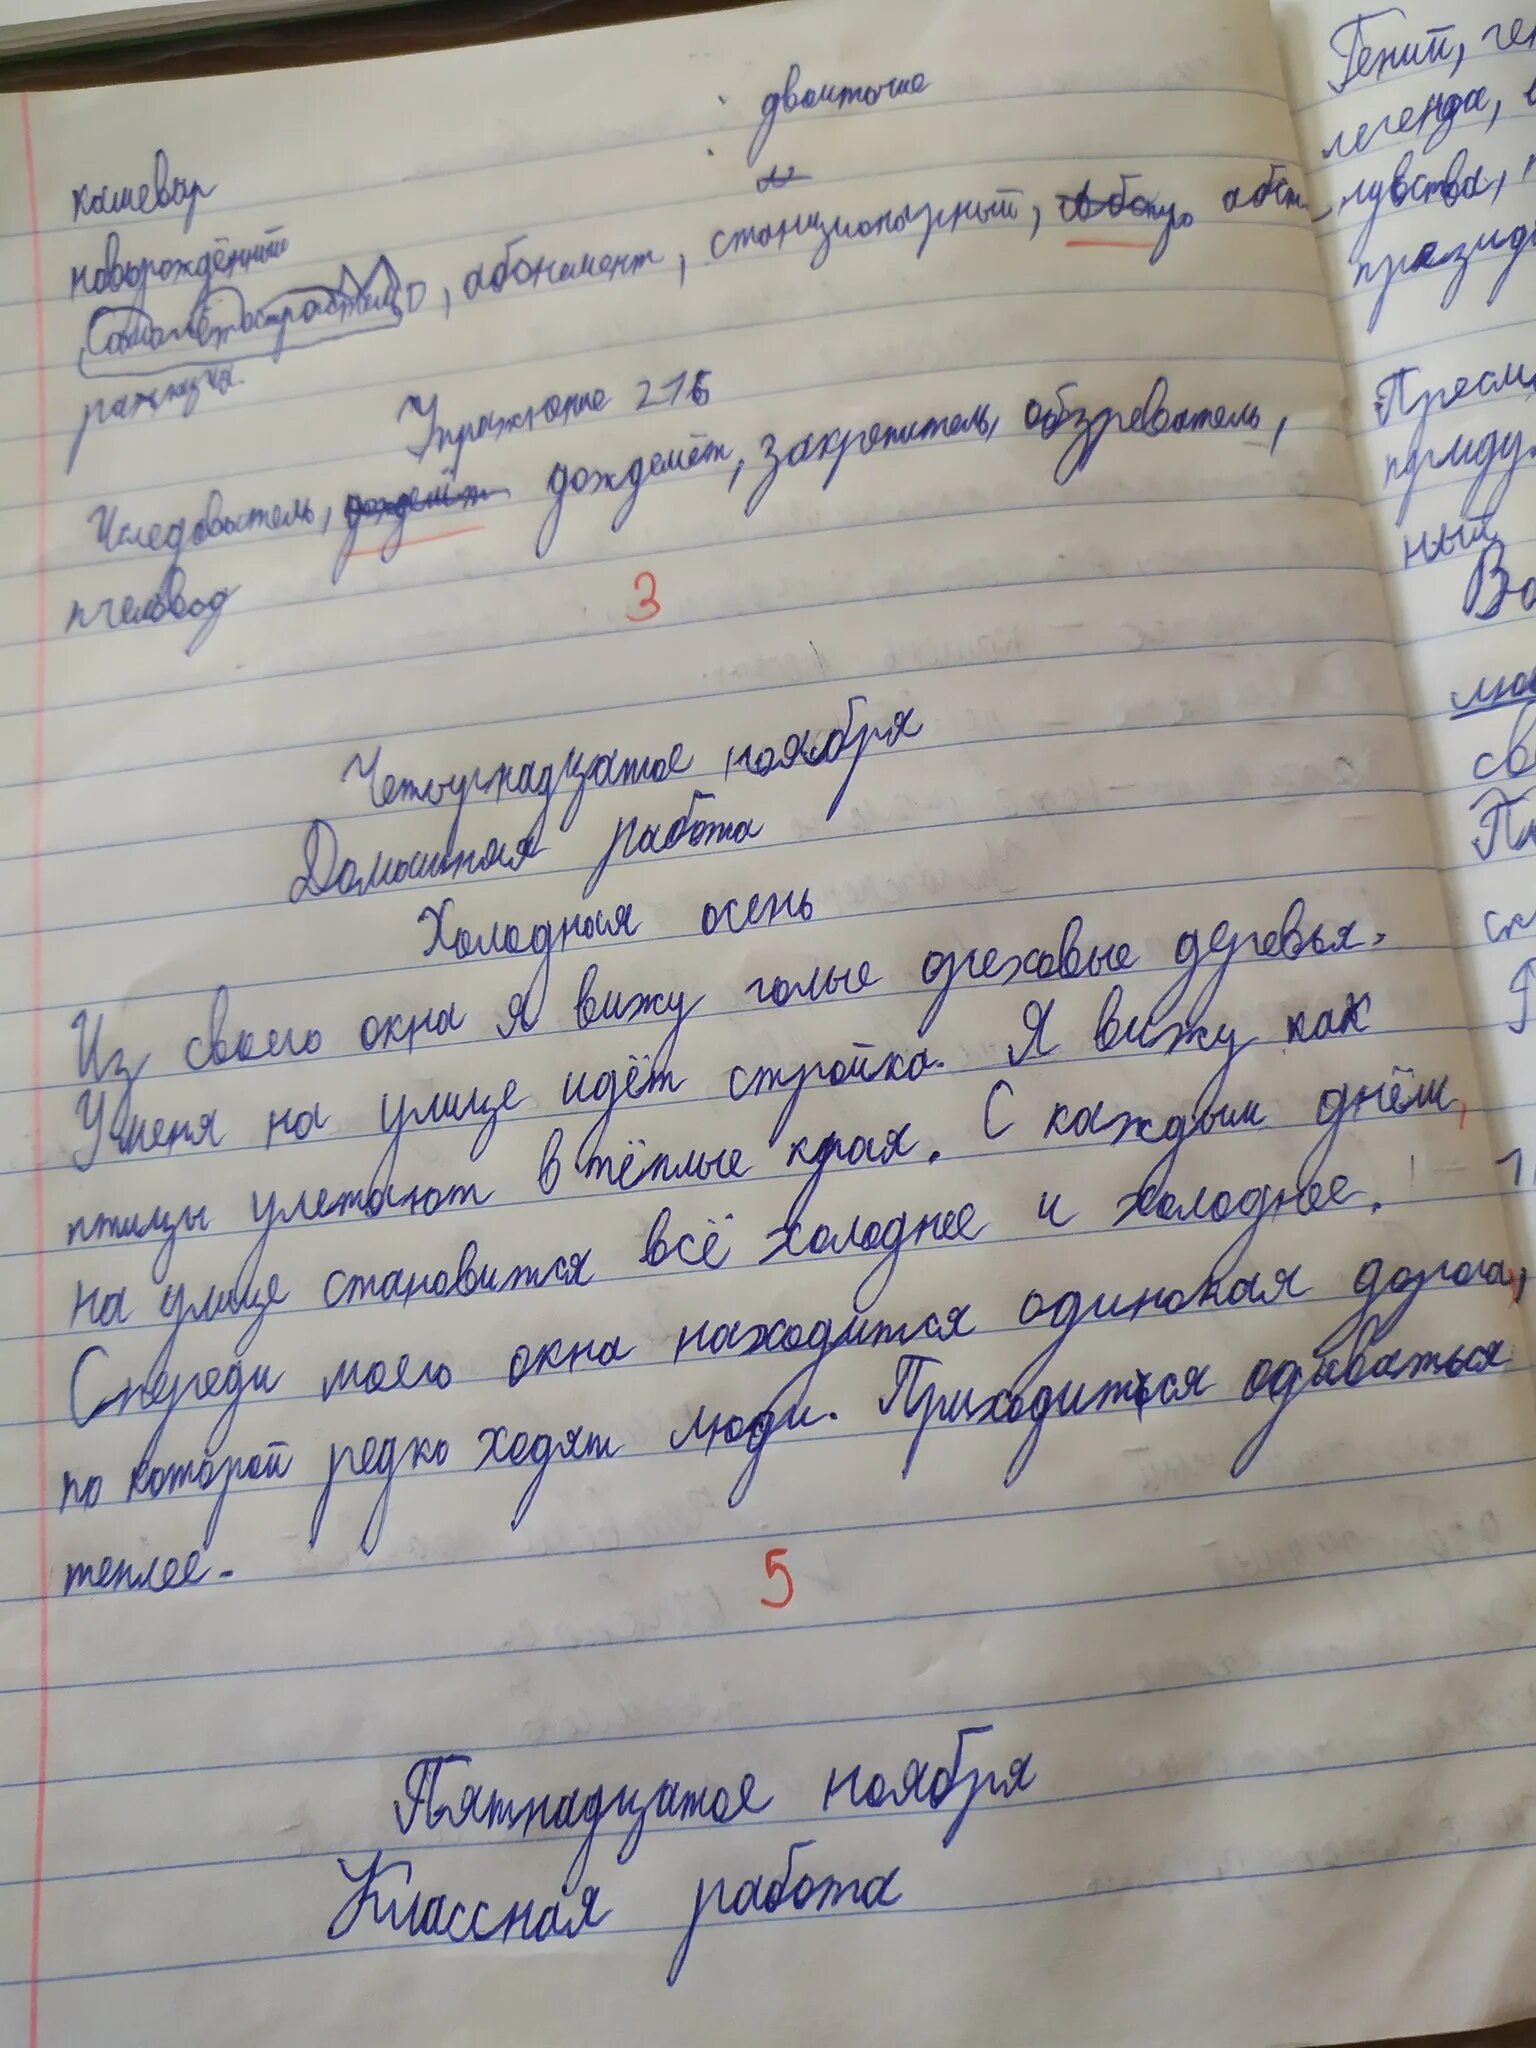 двоиточие
кашевар
новорождённый
Самолётостроитель, абонемент, станционарный, абст-
Упражнение 216
Иследователь, дождемёт дождемёт, закрепитель, обозреватель,
пчеловод
3
Четырнадцатое ноября
Домашняя работа
Холодная осень
Из своего окна я вижу голые ореховые деревья.
У меня на улице идёт стройка. Я вижу как
птицы улетают в тёплые края. С каждым днём,
на улице становится всё холоднее и холоднее.
Спереди моего окна находится одинокая дорога,
по которой редко ходят люди. Приходится одеваться
теплее.
5
Пятнадцатое ноября
Классная работа
Гений, ген
легенда,
президе
Пресм
придум
ный
Во
св